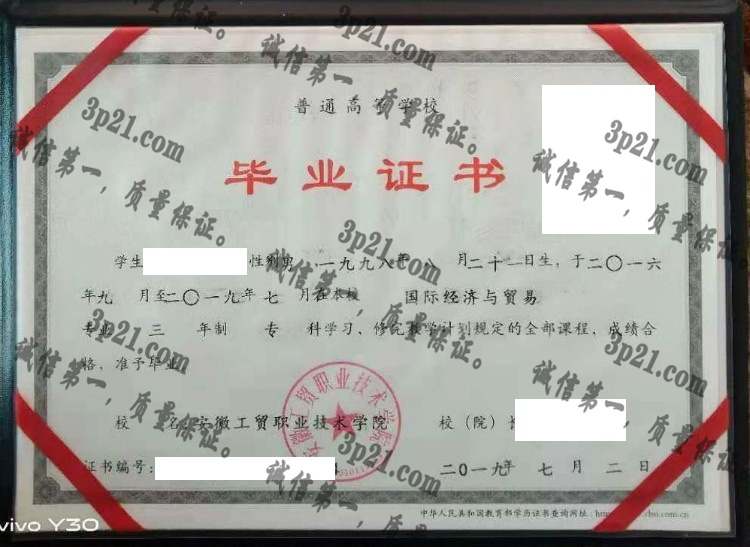 普通高等学校
毕业证书
学生 性别男,一九九八年八月二十一日生,于二〇一六
年九月至二〇一九年七月在本校 国际经济与贸易
专业 三年制 专科学习,修完教学计划规定的全部课程,成绩合
格,准予毕业。
校 名:安徽工贸职业技术学院 校(院)长
证书编号: 二〇一九年七月二日
安徽工贸职业技术学院
中华人民共和国教育部学历证书查询网址:
3p21.com
诚信第一,质量保证。
3p21.com
诚信第一,质量保证。
3p21.com
诚信第一,质量保证。
3p21.com
诚信第一,质量保证。
3p21.com
诚信第一,质量保证。
3p21.com
诚信第一,质量保证。
3p21.com
诚信第一,质量保证。
vivo Y30